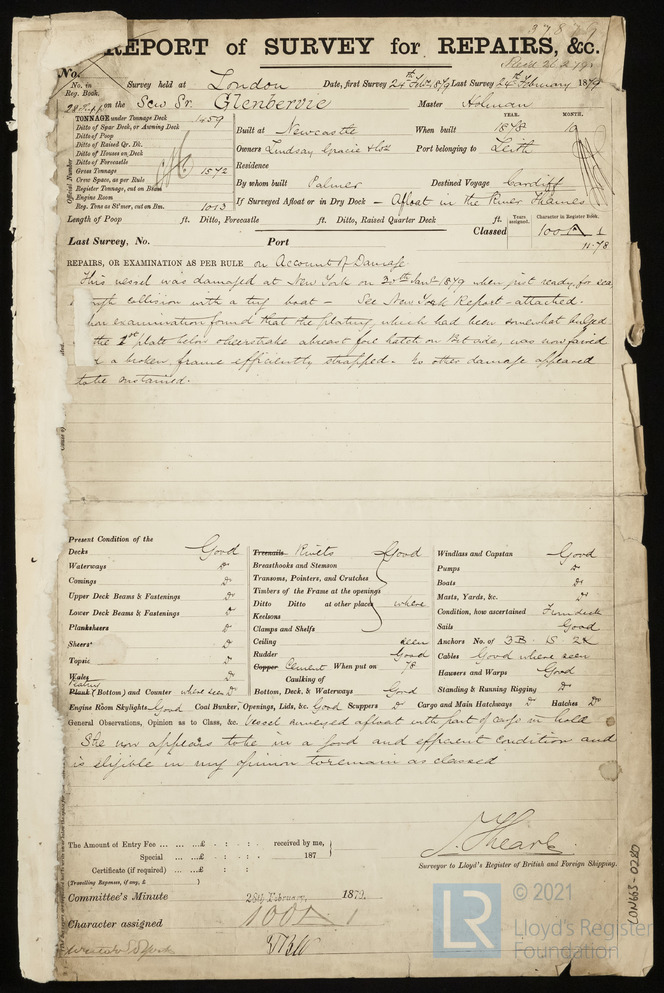 37879
REPORT of SURVEY for REPAIRS, &c.
No.
No. in Reg. Book. Survey held at London Date, first Survey 24th Feb. 1879 Last Survey 24th February 1879
on the Scw Sr. Glenbervie Master Holman
TONNAGE under Tonnage Deck 1459
Ditto of Spar Deck, or Awning Deck
Ditto of Poop
Ditto of Raised Qr. Dk.
Ditto of Houses on Deck
Ditto of Forecastle
Gross Tonnage 1572
Crew Space, as per Rule
Register Tonnage, cut on Beam
Engine Room
Reg. Tons as St'mer, cut on Bm. 1013
Official Number
YEAR. MONTH.
Built at Newcastle When built 1878 10
Owners Lindsay Gracie & Co Port belonging to Leith
Residence
By whom built Palmer Destined Voyage Cardiff
If Surveyed Afloat or in Dry Dock — Afloat in the River Thames
Length of Poop ft. Ditto, Forecastle ft. Ditto, Raised Quarter Deck ft. Years assigned. Character in Register Book.
Classed 100 A 1
11-78
Last Survey, No. Port
REPAIRS, OR EXAMINATION AS PER RULE on Account of Damage
This vessel was damaged at New York on 30th Jany 1879 when just ready for sea
collision with a tug boat — See New York Report - attached.
examination found that the plating, which had been somewhat bulged
the 2nd plate below sheerstrake abreast fore hatch on Port side, was now faired
a broken frame efficiently strapped. No other damage appeared
to be sustained.
Present Condition of the
Decks Good
Waterways Do
Comings Do
Upper Deck Beams & Fastenings Do
Lower Deck Beams & Fastenings Do
Planksheers Do
Sheers Do
Topsic Do
Wales Do
Plating
Plank (Bottom) and Counter where seen Do
Treenails Rivets Good
Breasthooks and Stemson
Transoms, Pointers, and Crutches
Timbers of the Frame at the openings
Ditto Ditto at other places where
Keelsons
Clamps and Shelfs
Ceiling seen
Rudder Good
Copper Cement When put on 78
Caulking of
Bottom, Deck, & Waterways Good
Windlass and Capstan Good
Pumps Do
Boats Do
Masts, Yards, &c. Do
Condition, how ascertained From deck
Sails Good
Anchors No. of 3B. 1S. 2K
Cables Good where seen
Hawsers and Warps Good
Standing & Running Rigging Do
Engine Room Skylights Good Coal Bunker, Openings, Lids, &c. Good Scuppers Do Cargo and Main Hatchways Do Hatches Do
General Observations, Opinion as to Class, &c. Vessel surveyed afloat with part of cargo in hold
She now appears to be in a good and efficient condition and
is eligible in my opinion to remain as classed
The Amount of Entry Fee ... ... ...£ : : received by me,
Special ... ...£ : : 187
Certificate (if required) ... ...£ : :
(Travelling Expenses, if any, £ )
Surveyor to Lloyd's Register of British and Foreign Shipping.
Committee's Minute 28th February, 1879.
Character assigned 100 A 1
LON663-0280
LR
© 2021
Lloyd's Register
Foundation